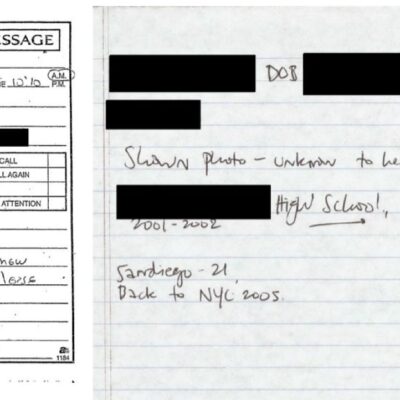 ESSAGE
10:10 A.M.
P.M.
CALL
LL AGAIN
ATTENTION
1184
DOB
Shown photo - unknown to he
High School,
2001-2002
Sandiego - 21
Back to NYC 2005.